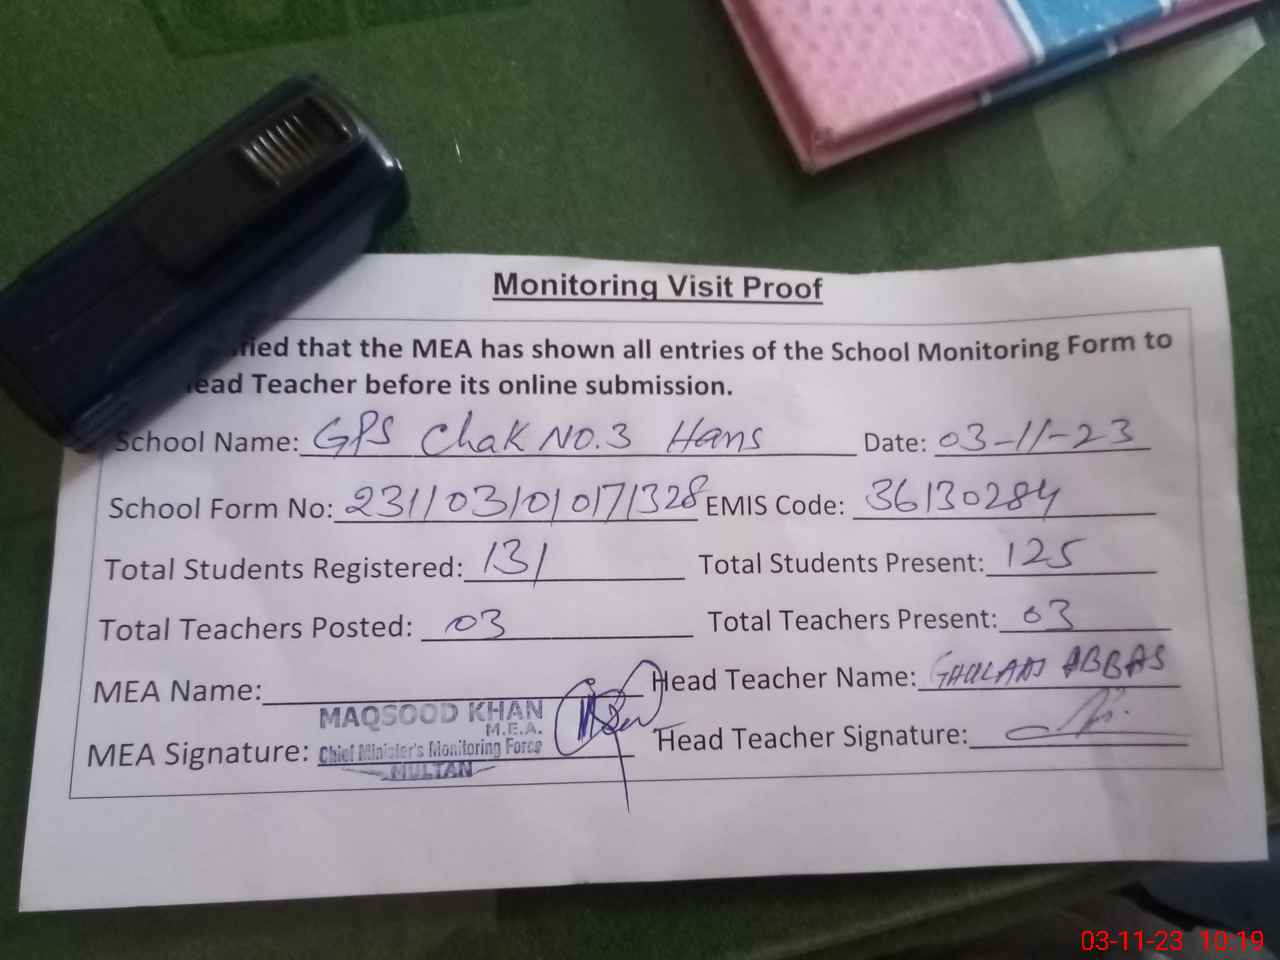 Monitoring Visit Proof
that the MEA has shown all entries of the School Monitoring Form to
Teacher before its online submission.
School Name: GPS Chak NO.3 Hans Date: 03-11-23
School Form No: EMIS Code: 36130284
Total Students Registered: 131 Total Students Present: 125
Total Teachers Posted: 03 Total Teachers Present: 03
MEA Name: Head Teacher Name: GHULAM ABBAS
MAQSOOD KHAN
M.E.A.
MEA Signature: Chief Minister's Monitoring Force Head Teacher Signature:
MULTAN
03-11-23 10:19